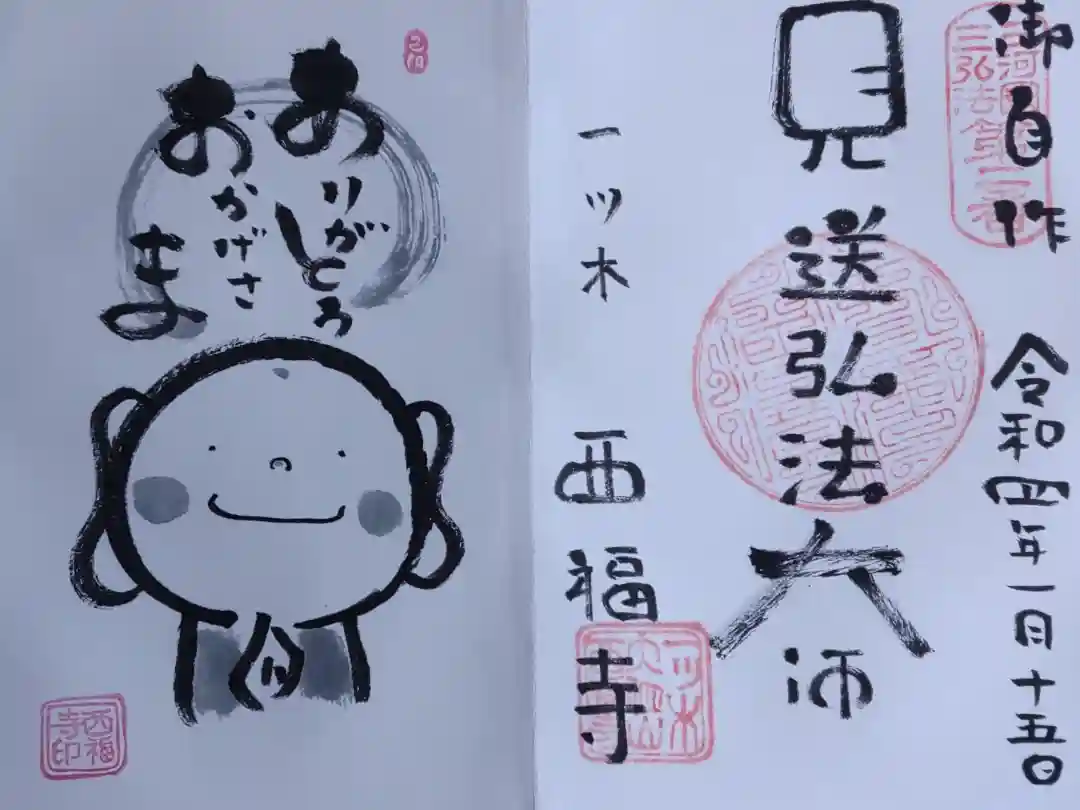 御自作
令和四年一月十五日
三河国
三弘法第二番
見送弘法大師
一ツ木
西福寺
ありがとう
おかげさま
西福
寺印